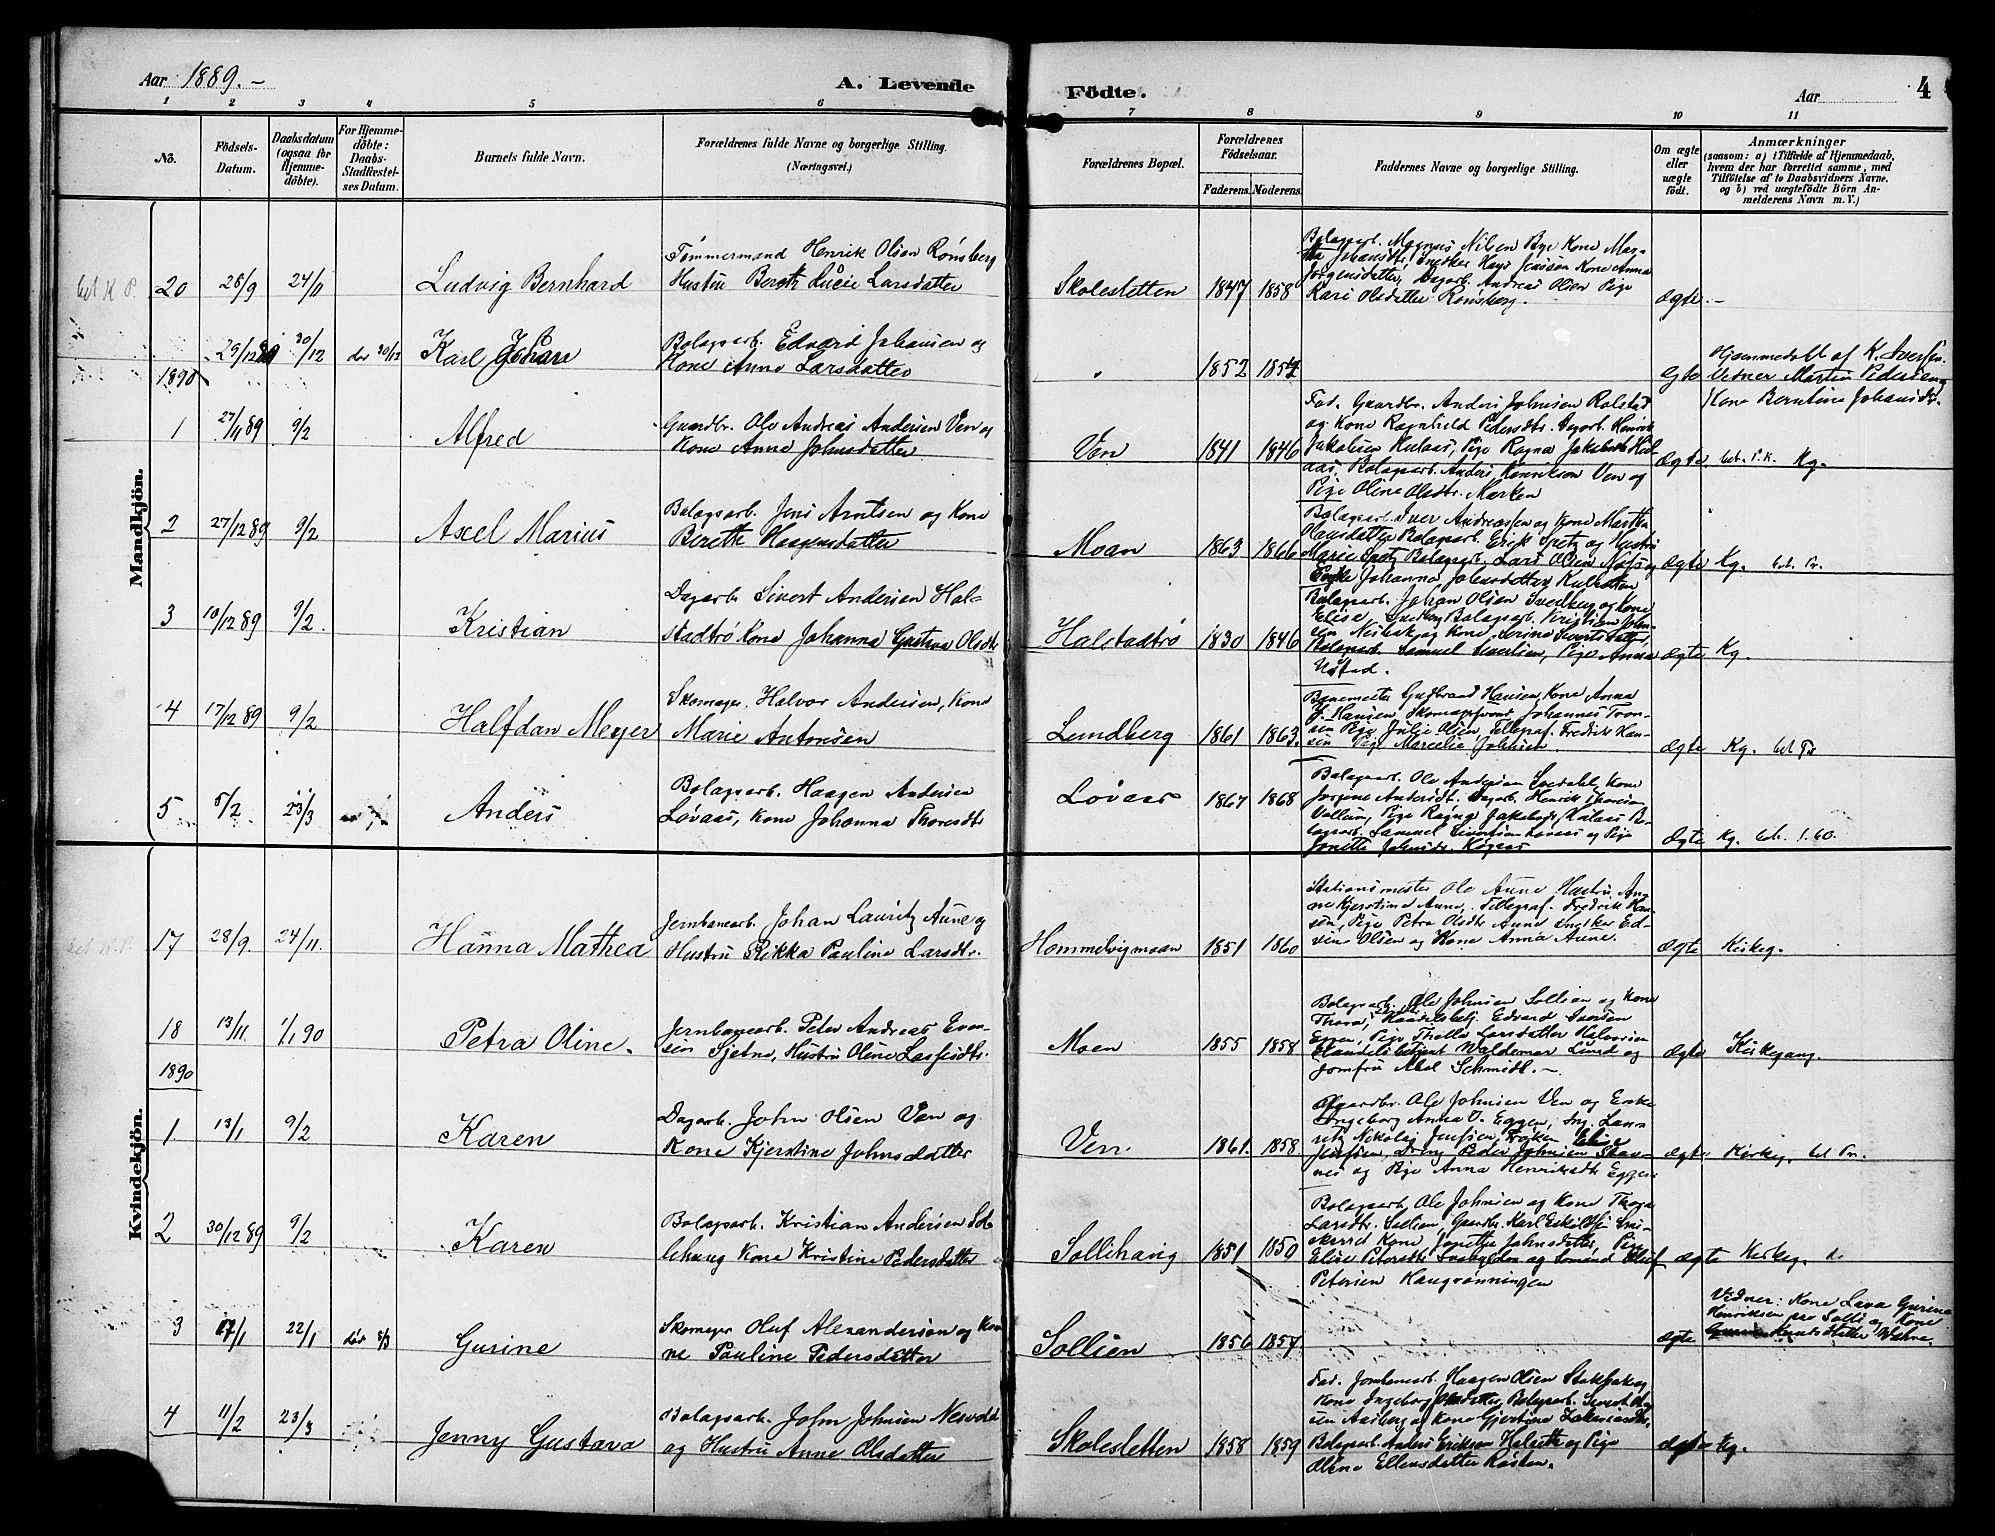 Aar 1889. -
A. Levende
Födte.
Aar
4
1 2 3 4 5 6 7 8 9 10 11
No.
Födsels-
Datum.
Daabsdatum
(ogsaa for
Hjemme-
döbte).
For Hjemme-
döbte:
Daabs-
Stadfæstel-
ses Datum.
Barnets fulde Navn.
Forældrenes fulde Navne og borgerlige Stilling.
(Næringsvei.)
Forældrenes Bopæl.
Forældrenes
Födselsaar.
Faderens. Moderens.
Faddernes Navne og borgerlige Stilling.
Om ægte
eller
uægte
födt.
Anmærkninger
(saasom: a) i Tilfælde af Hjemmedaab,
hvem der har forrettet samme, med
Tilföielse af to Daabsvidners Navne,
og b) ved uægtefödte Börn An-
melderens Navn m. V.)
Mandkjön.
20 28/9 24/11 Ludvig Bernhard
Tømmermand Henrik Olsen Rønsberg
Hustru Bereth Lucie Larsdatter
Skolesletten 1847 1858
Bolagsarb. Magnus Nilsen Bye Kone Mag-
Jørgensdatter, Dagarb. Andreas Olsen Pige
Kari Olsdatter Rønsberg.
ægte. -
29/12 30/12 død 30/12 Karl Johan
Bolagsarb. Edvard Johansen og
Kone Anne Larsdatter
" 1852 1854
ægte
Hjemmedøbt af K. Iversen.
Vidner Martin Pedersen og
Kone Berntine Johansdtr.
1890
1 27/11 89 9/2 Alfred
Gaardbr. Ole Andreas Andersen Ven og
Kone Anne Johnsdatter
Ven 1841 1846
Fad. Gaardbr. Anders Johnsen Rolstad
og Kone Ragnhild Pedersdtr. Dagarb. Henrik
Jakobsen Kulaas, Pige Ragna Jakobsdtr Kul-
aas, Bolagsarb. Anders Henriksen Ven og
Pige Oline Olsdtr. Marken
ægte bet. P.K. Kg.
2 27/12 89 9/2 Axel Marius
Bolagsarb. Jens Arntsen og Kone
Bereth Haagensdatter
Moan 1863 1866
Bolagsarb. Iver Andreassen og Kone Martha
Olausdatter Bolagsarb. Erik Spetz og Hustru
Marie Spetz Bolagsarb. Lars Olsen
Johanna Johnsdatter
ægte Kg. bet. Pr.
3 10/12 89 9/2. Kristian
Dagarb. Sivert Andersen Hal-
stadtrø Kone Johanna Gustava Olsdtr
Halstadtrø 1830 1846
Bolagsarb. Johan Olsen Svedberg og Kone
Elise Svedberg Bolagsarb. Kristian John-
sen Neibak og Kone Serine Sivertsdatter,
Bolagsarb. Samuel Sivertsen, Pige Anna
Ustad.
ægte Kg.
4 17/12 89 9/2 Halfdan Meyer
Skomager. Halvor Andersen, Kone
Marie Antonsen
Lundberg 1861 1863.
Banemester Gudbrand Hansen, Kone Anna
J. Hansen, Skomagersvend Johannes Tron-
sen Pige Julie Olsen, Tellegraf. Fredrik Han-
sen Pige Marcelie Johnsen.
ægte Kg. bet Pr
5 5/2 23/3 Anders
Bolagsarb. Haagen Andersen
Løvaas, Kone Johanna Thoresdtr
Løvaas 1867 1868
Bolagsarb. Ole Andersen Svedahl, Kone
Jørgine Andersdt. Dagarb. Henrik Thoresen
Vollum, Pige Ragna Jakobsdtr Kulaas Bo-
lagsarb. Samuel Sivertsen Løvaas og Pige
Jonette Johnsdtr.
ægte Kg. bet. 1.60.
Kvindekjön.
17 28/9. 24/11. Hanna Mathea
Jernbanearb. Johan Lauritz Aune og
Hustru Rikka Pauline Larsdtr.
Hommelvigmoan 1851 1860
Stationsmester Ole Aune Hustru An-
ne Kjerstine Aune, Tellegraf. Fredrik Han-
sen, Pige Petra Olsdtr Aune Snedker Ed-
vin Olsen og Kone Anna Aune.
ægte Kirkeg.
18 13/11. 1/1 90 Petra Oline.
Jernbanearb. Peter Andreas Even-
sen Gjetne, Hustru Oline Larsesdtr.
Moen 1855 1858
Bolagsarb. Ole Johnsen Sollien og Kone
Thora, Handelsbetj. Edvard Iversen
Eggen, Pige Thella Larsdatter Halvorsen
Handelsbetjent Waldemar Lund og
Jomfru Abel Schmidt. -
ægte Kirkegang.
1890
1 13/1 9/2 Karen
Dagarb. John Olsen Ven og
Kone Kjerstine Johnsdatter
Ven. 1861. 1858
Gaardbr. Ole Johnsen Ven og Enke
Ingeborg Anna O. Eggen, Ing. Lau-
ritz Nikolaj Jenssen, Frøken Elise
Jenssen Dreng Peder Johnsen Stav-
nes og Pige Anna Henriksdtr Eggen
ægte Kirkeg. bet Pr.
2 30/12 89 9/2 Karen
Bolagsarb. Kristian Andersen Sol-
lihaug Kone Kristine Pedersdatter
Sollihaug 1851 1850
Bolagsarb. Ole Johnsen og Kone Thora
Larsdtr. Sollien, Gaardbr. Karl Eskildsen Smi-
skaret Kone Jonette Johnsdatter, Pige
Elise Petersdtr og Sømand Oluf
Petersen Haugrønningen
ægte Kirkeg.
3 17/1 22/1 død 8/3 Gusine
Skomager Oluf Alexandersen og Ko-
ne Pauline Pedersdatter
Sollien 1856 1857
ægte
Vidner: Kone Lava Gurine
Henriksen paa Solli og Kone
Knutsdatter
4 11/2 23/3 Jenny Gustava
Bolagsarb. John Johnsen Nesvold
og Hustru Anne Olsdatter
Skolesletten 1858 1859
Fad. Jernbanearb. Haagen Olsen Stokbak og
Kone Ingeborg Bolagsarb. Sivert
sen Aasberg og Kone Gjertine Zakariasdtr,
Bolagsarb. Anders Eriksen og Pige
Oline Ellensdatter
ægte Kg.